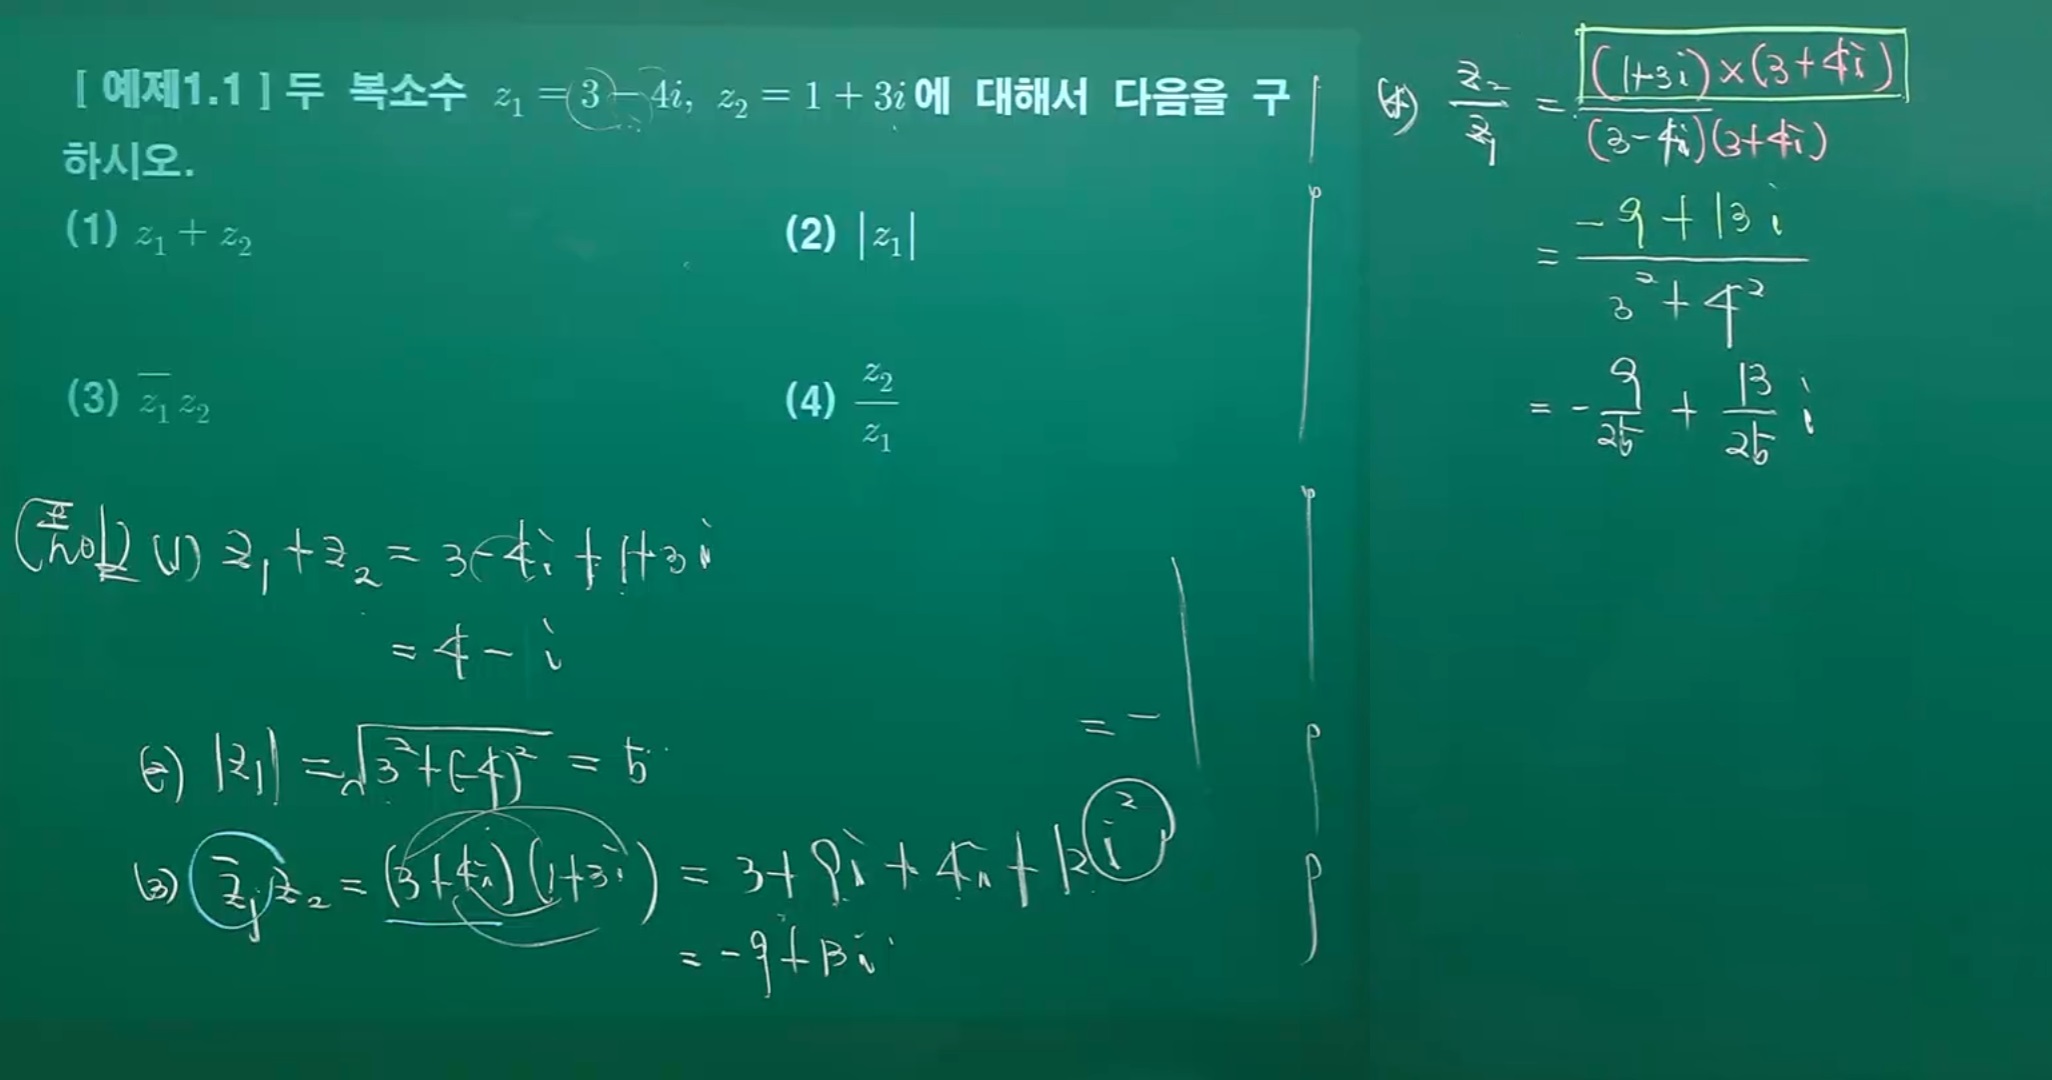 [ 예제1.1 ] 두 복소수 z₁ = 3 − 4i, z₂ = 1 + 3i 에 대해서 다음을 구
하시오.
(1) z₁ + z₂
(2) |z₁|
(3) z̅₁ z₂
(4) z₂/z₁
(풀이) (1) z₁ + z₂ = 3 − 4i + 1 + 3i
= 4 − i
(2) |z₁| = √(3² + (−4)²) = 5
= −
(3) z̅₁ z₂ = (3 + 4i)(1 + 3i) = 3 + 9i + 4i + 12i²
= −9 + 13i
(4) z₂/z₁ = (1+3i)×(3+4i) / (3−4i)(3+4i)
= −9 + 13i / 3² + 4²
= −9/25 + 13/25 i